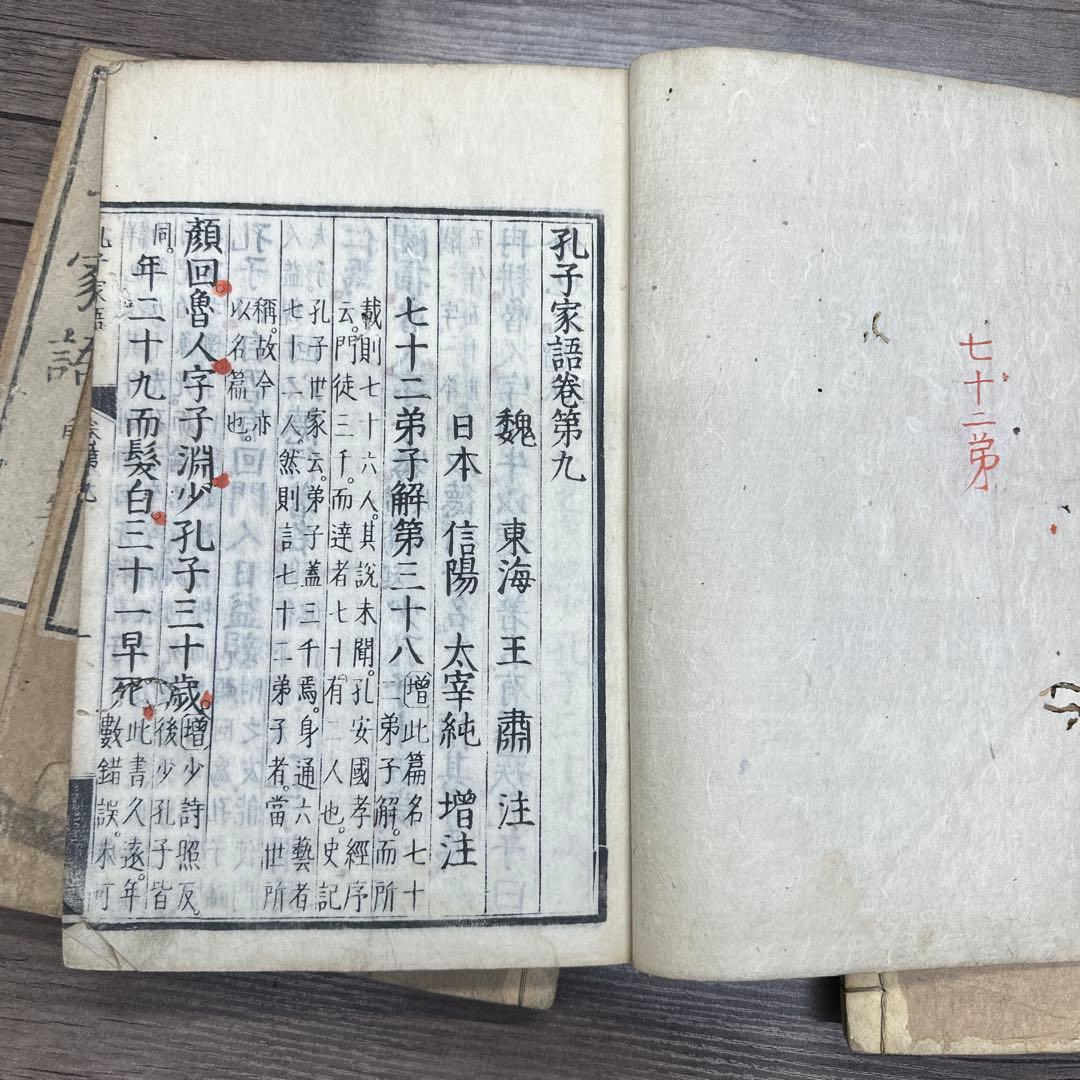 七十二弟
孔子家語卷第九
魏 東海 王肅 注
日本 信陽 太宰純 增注
七十二弟子解第三十八增此篇名七十
二弟子解。而所
載則七十六人。其說未聞。孔安國孝經序
云。門徒三千。而達者七十。有二人也。史記
孔子世家云。弟子蓋三千焉。身通六藝者
七十二人。然則言七十二弟子者。當世所
稱。故今亦
以名篇也。
顏回魯人字子淵少孔子三十歲增少詩照反。
後少孔子皆
同。年二十九而髮白三十一早死此書久遠。年
數錯誤。未可
孔子家語
卷第九
家語